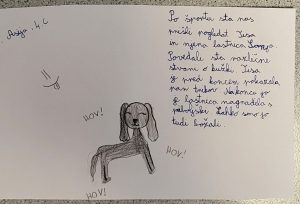 4. C
Po športu sta nas
prišli pogledat Tesa
in njena lastnica
Povedale sta različne
stvari o kužki Tesa
pred koncem pokazala
nam trikov. Nakonco jo
je lastnica nagradila s
priboljški. Lahko smo jo
tudi božali.
HOV!
HOV!
HOV!